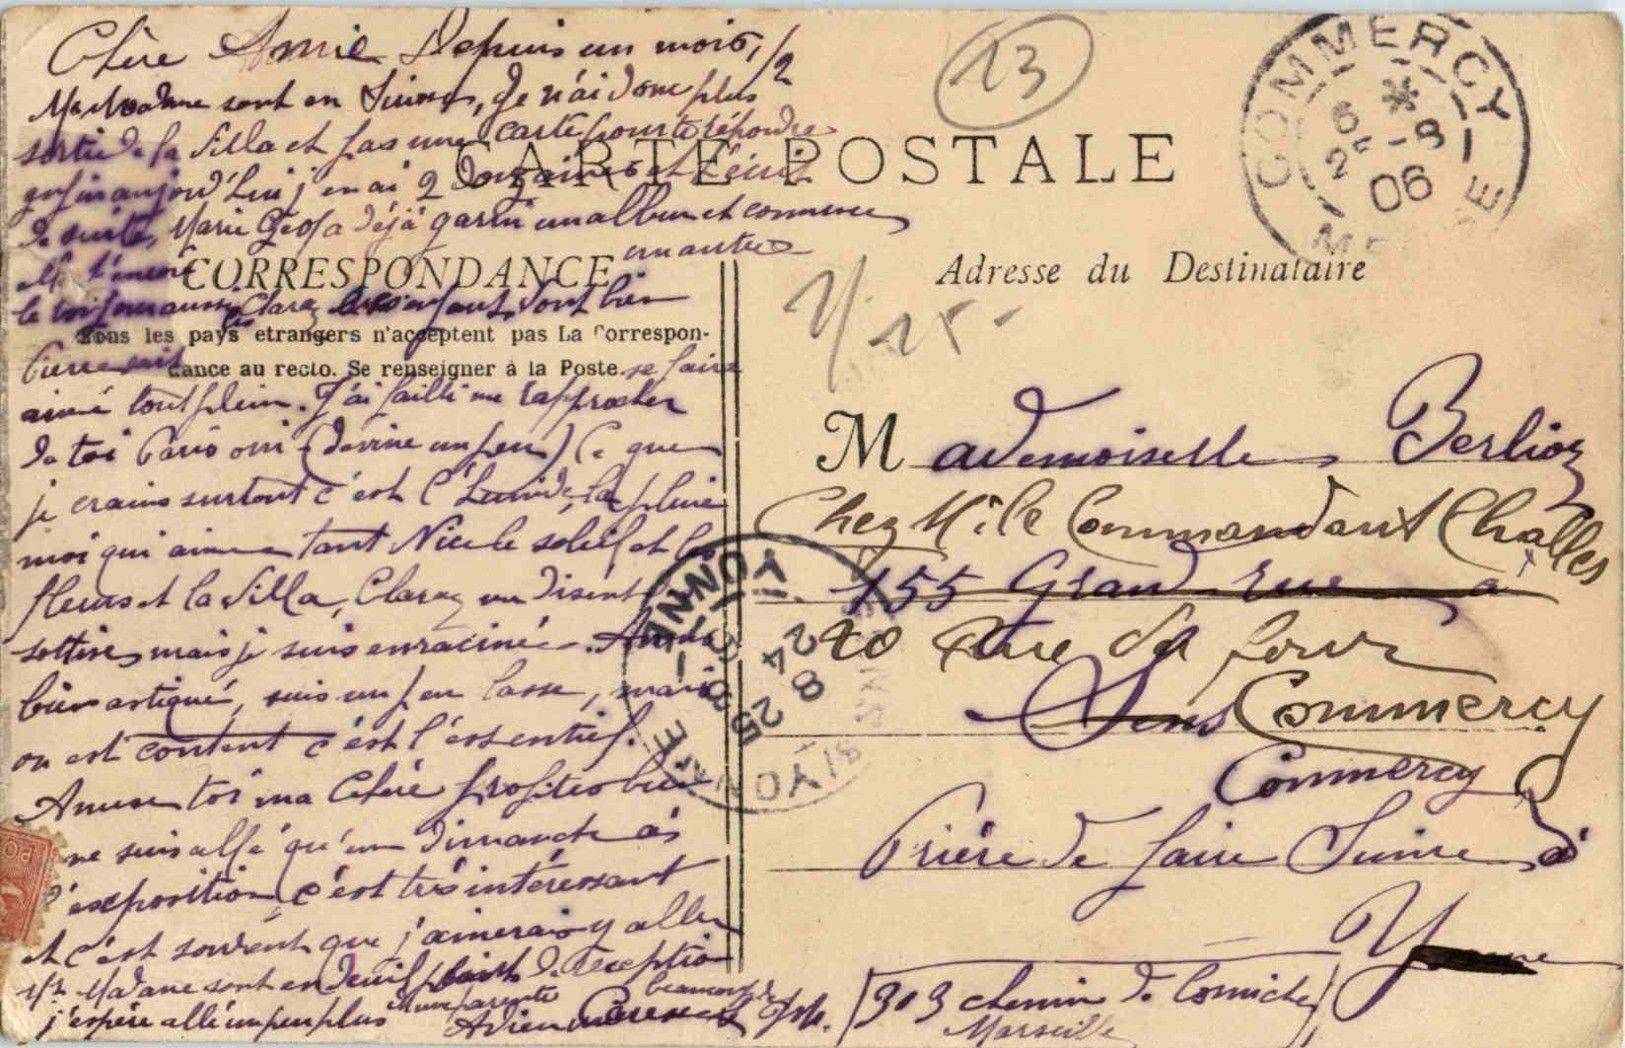 Chère Amie Depuis un mois 1/2
Mr Madame sont en Suisse, Je n'ai donc plus
sortie de la Villa et pas une carte pour te répondre
enfin aujourd'hui j'en ai 2 douzaines et t'écris
de suite, Marie déjà garni un album et commence
un autre
CARTE POSTALE
CORRESPONDANCE
le aussi Clara les enfants vont bien
Tous les pays etrangers n'acceptent pas La Correspon-
dance au recto. Se renseigner à la Poste.
Pierre sait se faire
aimé tout plein. J'ai failli me rapprocher
de toi Paris oui (devine un peu) Ce que
je crains surtout c'est l'humide, la pluie
moi qui aime tant Nice le soleil et les
fleurs et la Villa, Clara me disent
sottises mais je suis enraciné.
bien fatigué, suis un peu lasse, mais
on est content c'est l'essentiel.
Amuse toi ma Chère profites bien
ne suis allé qu'un dimanche à
l'exposition, c'est très intéressant
et c'est souvent que j'aimerais y aller
Mr Madame sont en deuil de réception
d'une parente
j'espère allé un peu plus
Adieu beaucoup de
13
COMMERCY
6
25 -8
06
MEUSE
Adresse du Destinataire
1/15-
Mademoiselle Berlioz
Chez Mr le Commandant Challes
155 Grand rue à
20 Rue du four
Sens Commercy
Commercy
Prière de faire Suivre à
Yonne
YONNE
24
25 8
303 chemin de Corniche
Marseille